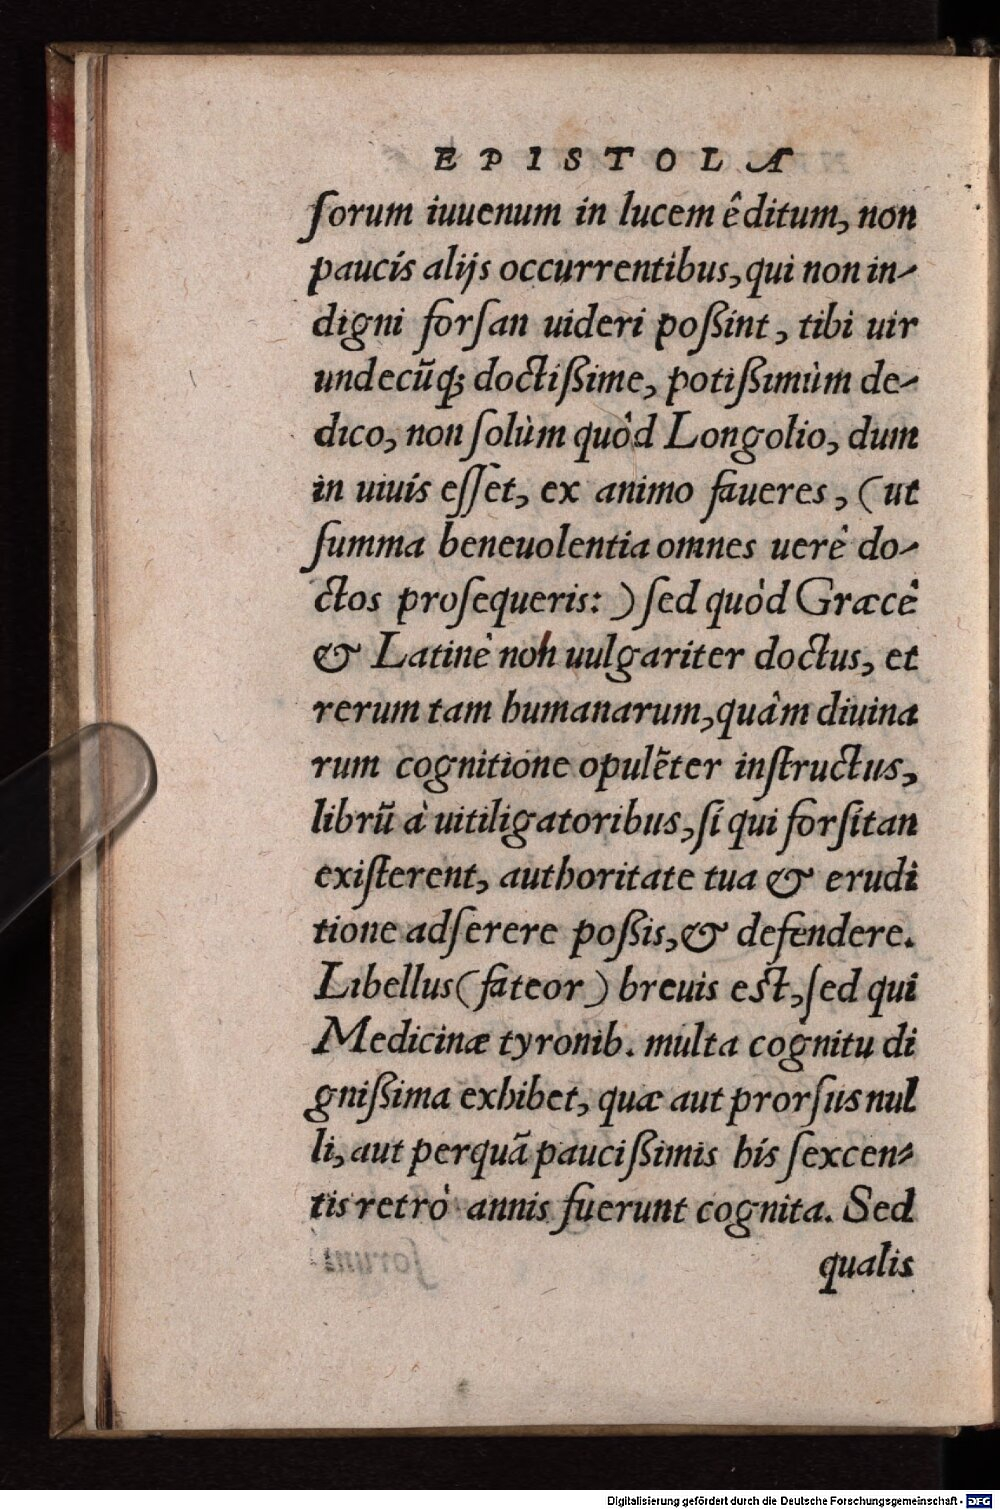 EPISTOLA
ſorum iuuenum in lucem êditum, non
paucis alijs occurrentibus, qui non in-
digni forſan uideri poßint, tibi uir
undecũq; doctißime, potißimùm de-
dico, non ſolùm quòd Longolio, dum
in uiuis eſſet, ex animo faueres, (ut
ſumma beneuolentia omnes uerê do-
ctos proſequeris: ) ſed quòd Græcê
& Latinè non uulgariter doctus, et
rerum tam humanarum, quàm diuina
rum cognitione opulẽter inſtructus,
librũ à uitiligatoribus, ſi qui forſitan
exiſterent, authoritate tua & erudi
tione adſerere poßis, & defendere.
Libellus (fateor) breuis eſt, ſed qui
Medicinæ tyronib. multa cognitu di
gnißima exhibet, quæ aut prorſus nul
li, aut perquã paucißimis bis ſexcen-
tis retrò annis fuerunt cognita. Sed
qualis
Digitalisierung gefördert durch die Deutsche Forschungsgemeinschaft - DFG